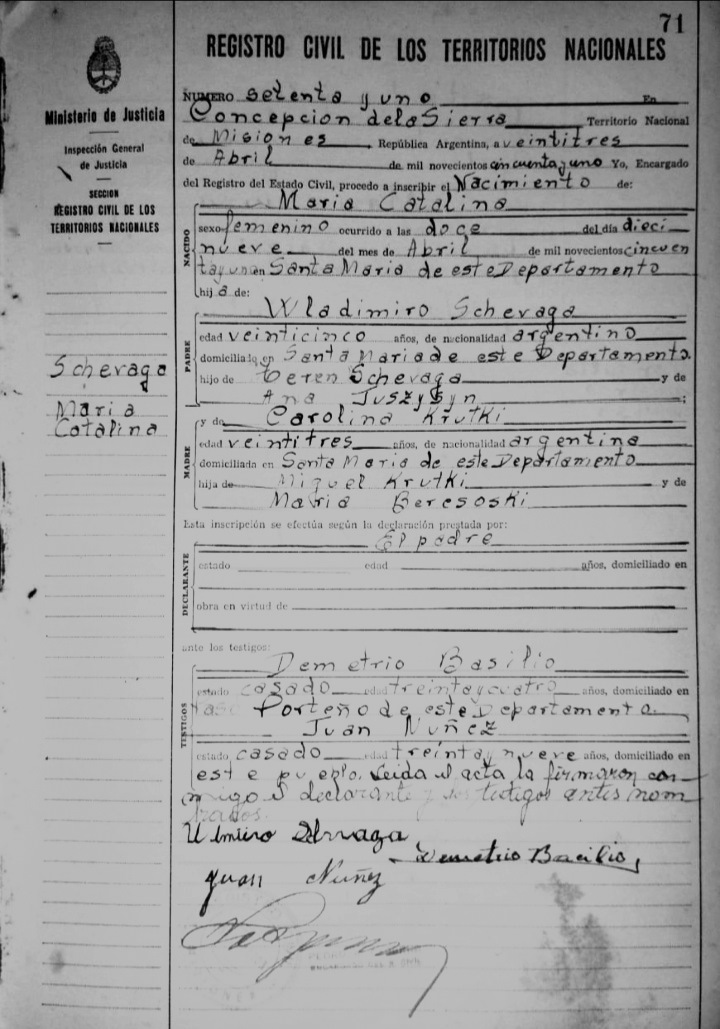 71
REGISTRO CIVIL DE LOS TERRITORIOS NACIONALES
Ministerio de Justicia
Inspección General
de Justicia
SECCION
REGISTRO CIVIL DE LOS
TERRITORIOS NACIONALES
Schevaga
Maria
Catalina
NUMERO setenta y uno En
Concepcion de la Sierra Territorio Nacional
de Misiones, República Argentina, a veintitres
de Abril de mil novecientos cincuenta y uno Yo, Encargado
del Registro del Estado Civil, procedo a inscribir el Nacimiento de:
NACIDO
Maria Catalina
sexo femenino ocurrido a las doce del día dieci
nueve del mes de Abril de mil novecientos cincuen
ta y un en Santa Maria de este Departamento
hija de:
PADRE
Wladimiro Schevaga
edad veinticinco años, de nacionalidad argentino
domiciliado en Santa Maria de este Departamento.
hijo de Teren Schevaga y de
Ana Juszysyn ;
MADRE
y de Carolina Krutki
edad veintitres años, de nacionalidad argentina
domiciliada en Santa Maria de este Departamento
hija de Miguel Krutki y de
Maria Beresoski
Esta inscripción se efectúa según la declaración prestada por:
DECLARANTE
El padre
estado edad años, domiciliado en
obra en virtud de
ante los testigos:
TESTIGOS
Demetrio Basilio
estado casado edad treinta y cuatro años, domiciliado en
Paso Porteño de este Departamento.
Juan Nuñez
estado casado edad treinta y nueve años, domiciliado en
este pueblo. Leida el acta la firmaron con
migo el declarante y los testigos antes nom
brados.
Demetrio Bacilio,
Juan Nuñez